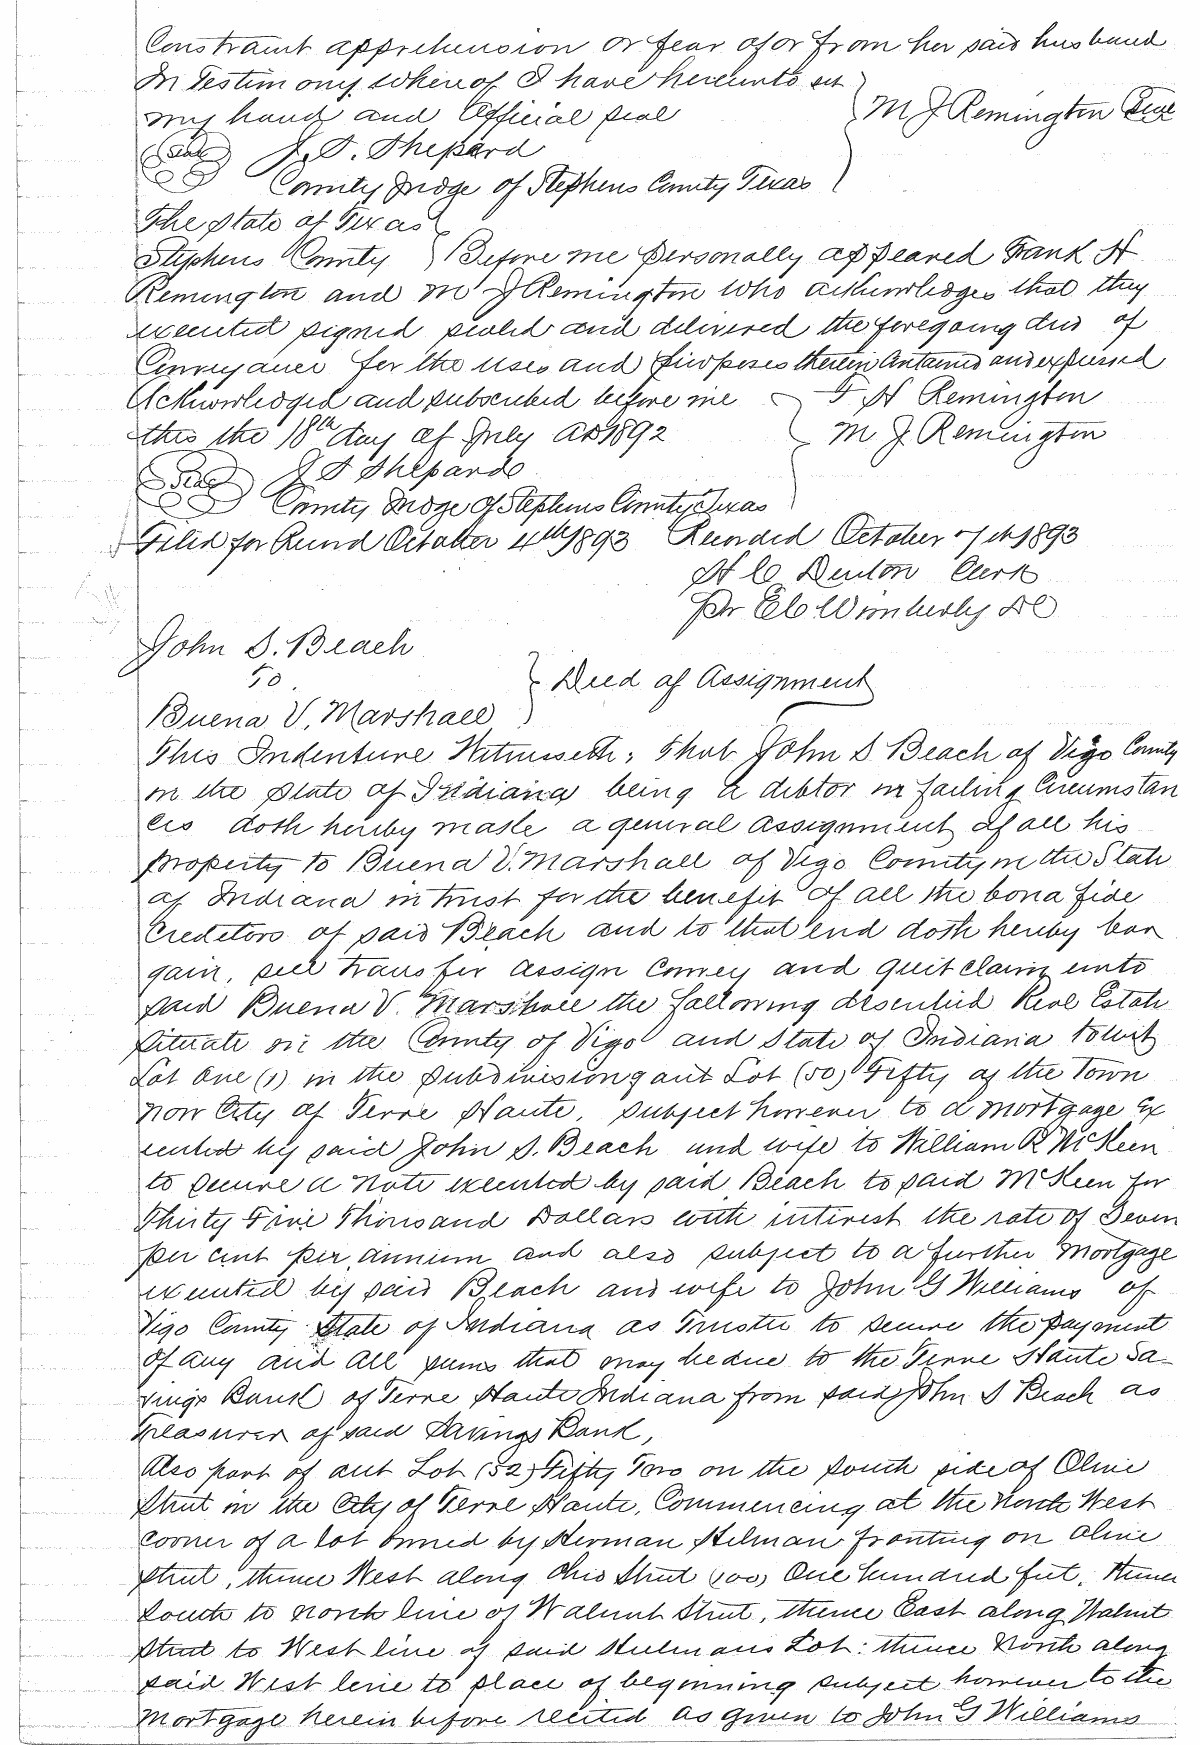 Constraint apprehension or fear of or from her said husband
In Testimony whereof I have hereunto set
my hand and Official seal
M J Remington Seal
Seal J. T. Shepard
County Judge of Stephens County Texas
The State of Texas
Stephens County Before me personally appeared Frank H
Remington and M J Remington who acknowledges that they
executed signed sealed and delivered the foregoing deed of
Conveyance for the uses and purposes therein contained and expressed
Acknowledged and subscribed before me
F H Remington
this the 18th day of July AD 1892
M J Remington
Seal J T Shepard
County Judge of Stephens County Texas
Filed for Record October 4th 1893 Recorded October 7th 1893
H C Denton Clerk
Pr E C Wimberly DC
John S. Beach
To
Deed of Assignment
Buena V. Marshall
This Indenture Witnesseth; That John S Beach of Vigo County
in the State of Indiana being a debtor in failing Circumstan
ces doth hereby make a general assignment of all his
property to Buena V. Marshall of Vigo County in the State
of Indiana in trust for the benefit of all the bona fide
Creditors of said Beach and to that end doth hereby bar
gain, sell transfer assign Convey and quit claim unto
said Buena V. Marshall the following described Real Estate
situate in the County of Vigo and State of Indiana towit
Lot One (1) in the subdivision of out Lot (50) Fifty of the Town
now City of Terre Haute, subject however to a mortgage Ex
ecuted by said John S. Beach and wife to William R McKeen
to secure a note executed by said Beach to said McKeen for
Thirty Five Thousand Dollars with interest the rate of Seven
per cent per annum and also subject to a further Mortgage
executed by said Beach and wife to John G Williams of
Vigo County State of Indiana as Trustee to secure the payment
of any and all sums that may be due to the Terre Haute Sa-
vings Bank of Terre Haute Indiana from said John S Beach as
Treasurer of said Savings Bank,
Also part of out Lot (52) Fifty Two on the south side of Ohio
Street in the City of Terre Haute, Commencing at the North West
corner of a lot owned by Herman Hulman fronting on Ohio
street, thence West along Ohio Street (100) One hundred feet, thence
South to north line of Walnut Street, thence East along Walnut
street to West line of said Hulmans Lot: thence North along
said West line to place of beginning subject however to the
Mortgage herein before recited as given to John G Williams